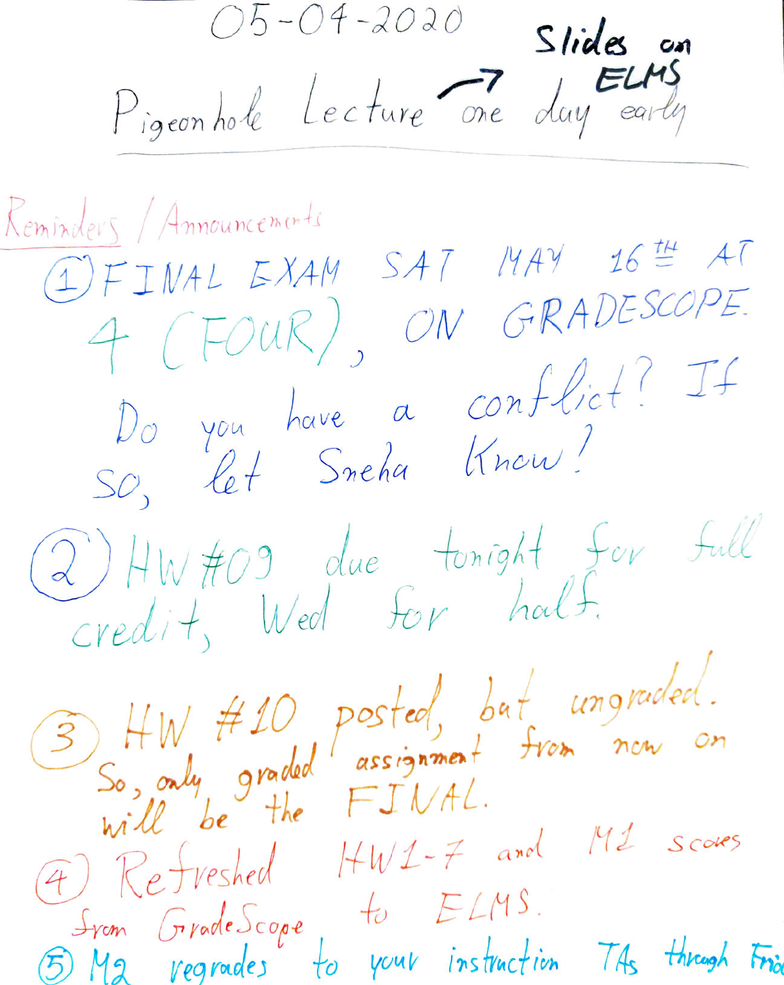 05-04-2020
Slides on
ELMS
Pigeonhole Lecture one day early
Reminders / Announcements
① FINAL EXAM SAT MAY 16TH AT
4 (FOUR), ON GRADESCOPE.
Do you have a conflict? If
so, let Sneha know!
② HW #09 due tonight for full
credit, Wed for half.
③ HW #10 posted, but ungraded.
So, only graded assignment from now on
will be the FINAL.
④ Refreshed HW1-7 and M1 scores
from GradeScope to ELMS.
⑤ M2 regrades to your instruction TAs through